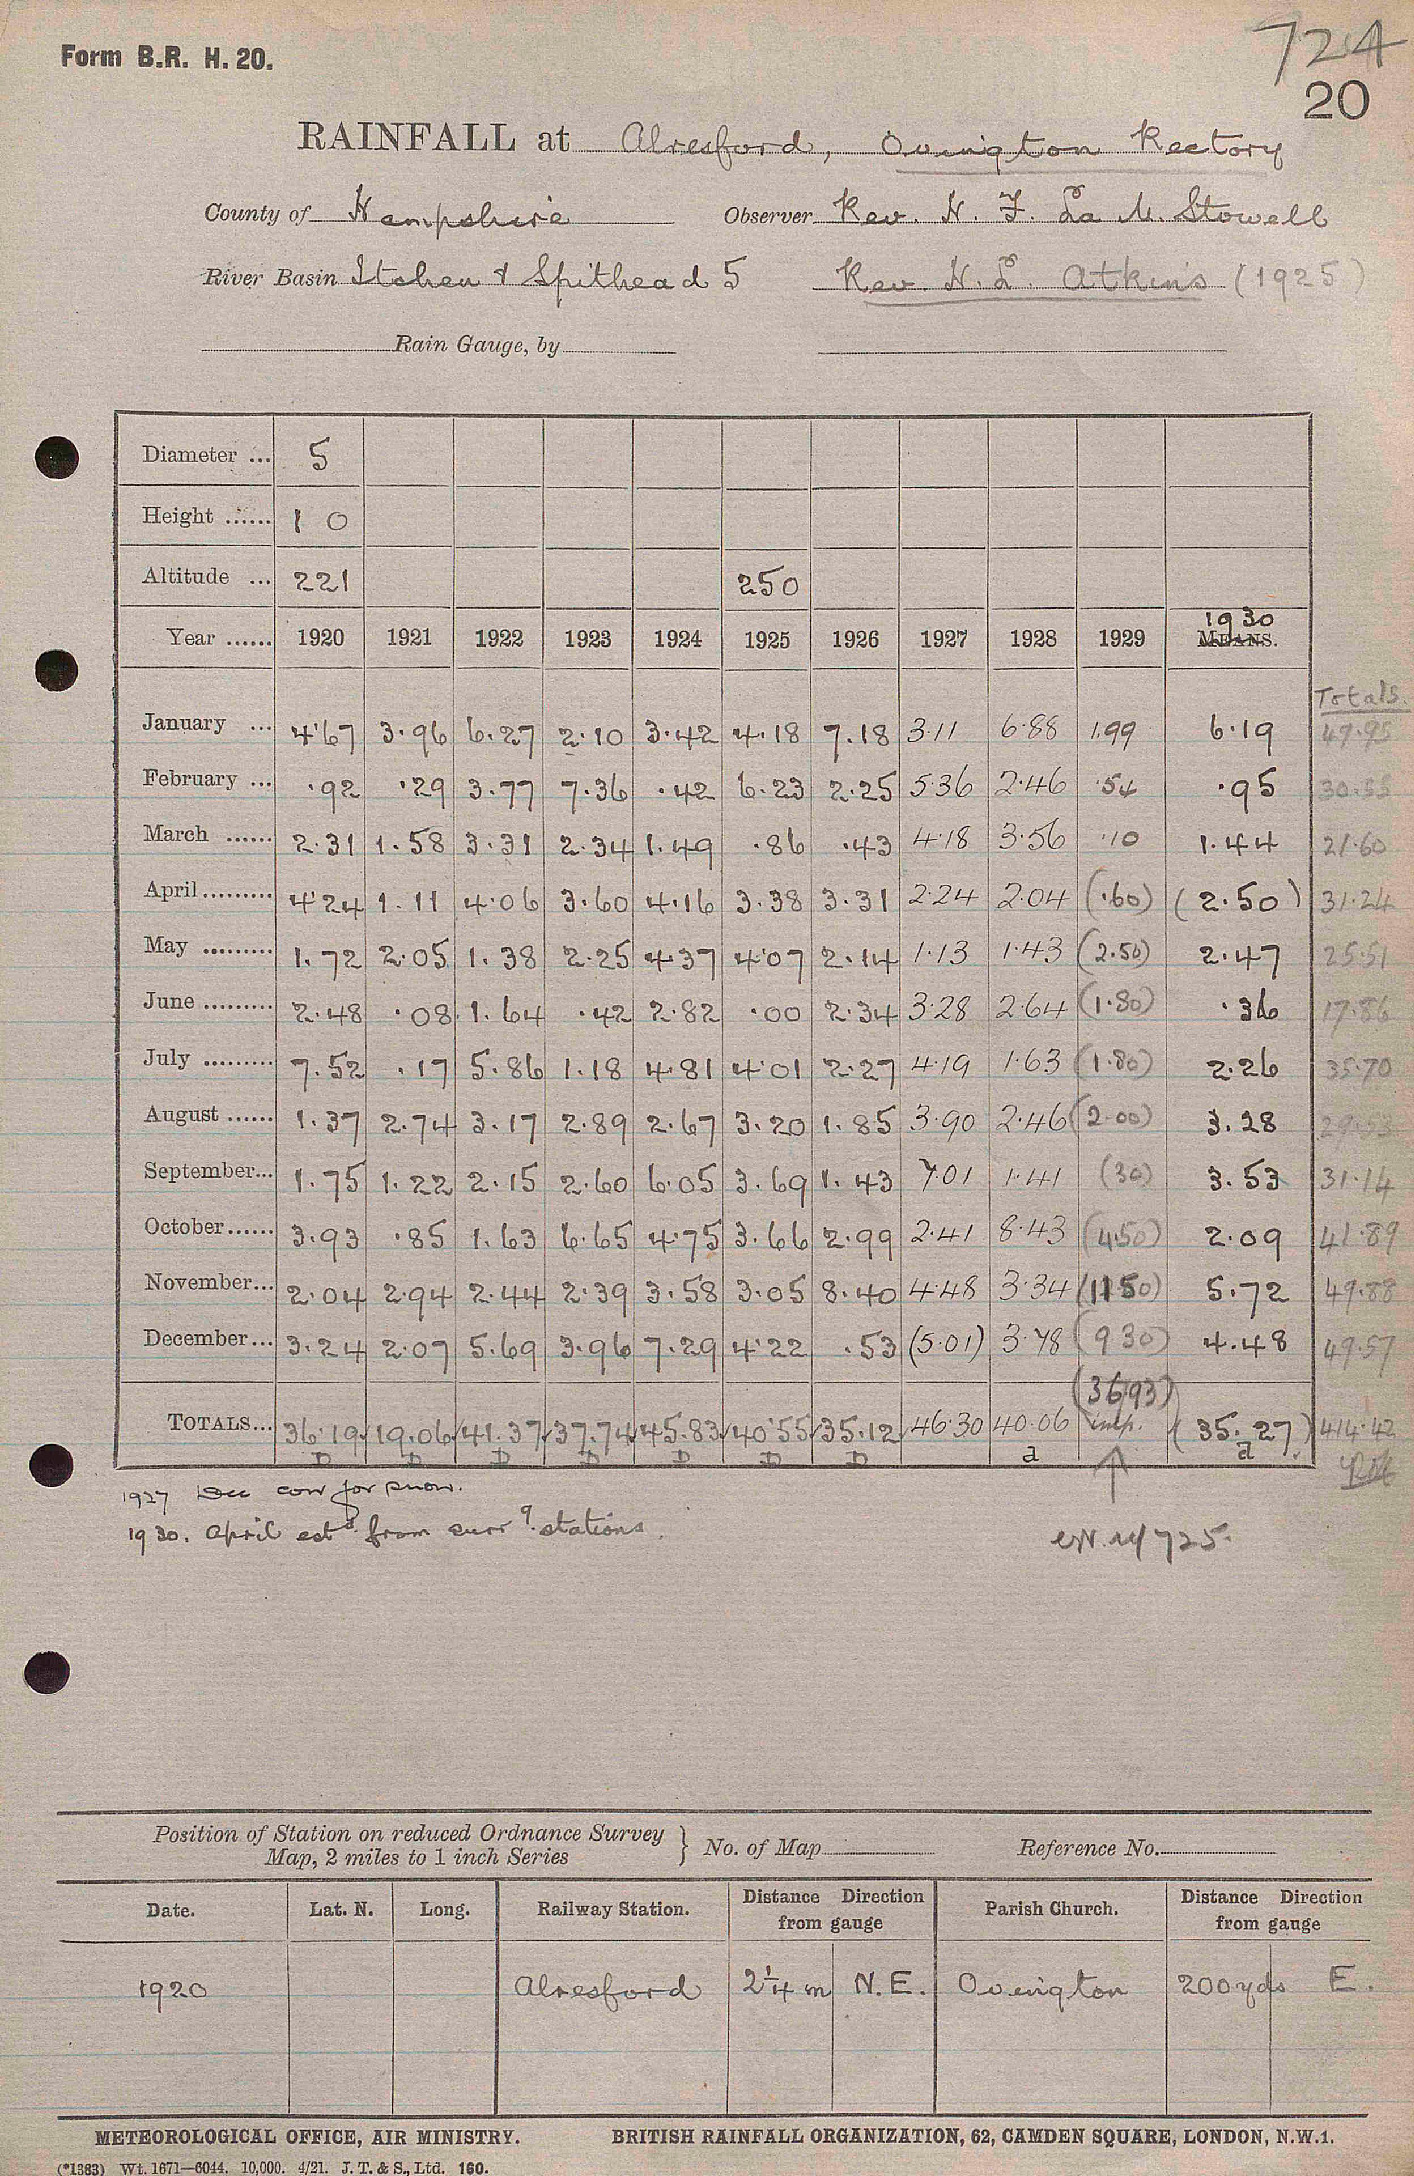 Form B.R. H. 20.
724
20
RAINFALL at Alresford, Ovington Rectory
County of Hampshire Observer Rev. H. F. La M. Stowell
River Basin Itchen & Spithead 5 Rev. H. L. Atkins (1925)
Rain Gauge, by
Diameter ... 5
Height ...... 1 0
Altitude ... 221 250
1930
Year ...... 1920 1921 1922 1923 1924 1925 1926 1927 1928 1929 MEANS.
Totals.
January ... 4.67 3.96 6.27 2.10 3.42 4.18 7.18 3.11 6.88 1.99 6.19 47.95
February ... .92 .29 3.77 7.36 .42 6.23 2.25 5.36 2.46 .54 .95 30.55
March ...... 2.31 1.58 3.31 2.34 1.49 .86 .43 4.18 3.56 .10 1.44 21.60
April ......... 4.24 1.11 4.06 3.60 4.16 3.38 3.31 2.24 2.04 (.60) (2.50) 31.24
May ......... 1.72 2.05 1.38 2.25 4.37 4.07 2.14 1.13 1.43 (2.50) 2.47 25.51
June ......... 2.48 .08 1.64 .42 2.82 .00 2.34 3.28 2.64 (1.80) .36 17.86
July ......... 7.52 .17 5.86 1.18 4.81 4.01 2.27 4.19 1.63 (1.80) 2.26 35.70
August ...... 1.37 2.74 3.17 2.89 2.67 3.20 1.85 3.90 2.46 (2.00) 3.28 29.53
September... 1.75 1.22 2.15 2.60 6.05 3.69 1.43 7.01 1.41 (30) 3.53 31.14
October...... 3.93 .85 1.63 6.65 4.75 3.66 2.99 2.41 8.43 (4.50) 2.09 41.89
November... 2.04 2.94 2.44 2.39 3.58 3.05 8.40 4.48 3.34 (11 50) 5.72 49.88
December... 3.24 2.07 5.69 3.96 7.29 4.22 .53 (5.01) 3.78 (9 30) 4.48 49.57
(36.93)
TOTALS... 36.19 19.06 41.37 37.74 45.83 40.55 35.12 46.30 40.06 imp. (35.27) 414.42
D D D D D D D a a
1927 Dec corr for snow.
1930. April estd. from surrg. stations.
725.
Position of Station on reduced Ordnance Survey
Map, 2 miles to 1 inch Series } No. of Map Reference No.
Date. Lat. N. Long. Railway Station. Distance Direction from gauge Parish Church. Distance Direction from gauge
1920 Alresford 2¼ m N.E. Ovington 200 yds E.
METEOROLOGICAL OFFICE, AIR MINISTRY. BRITISH RAINFALL ORGANIZATION, 62, CAMDEN SQUARE, LONDON, N.W.1.
(*1383) Wt. 1671—6044. 10,000. 4/21. J. T. & S., Ltd. 160.